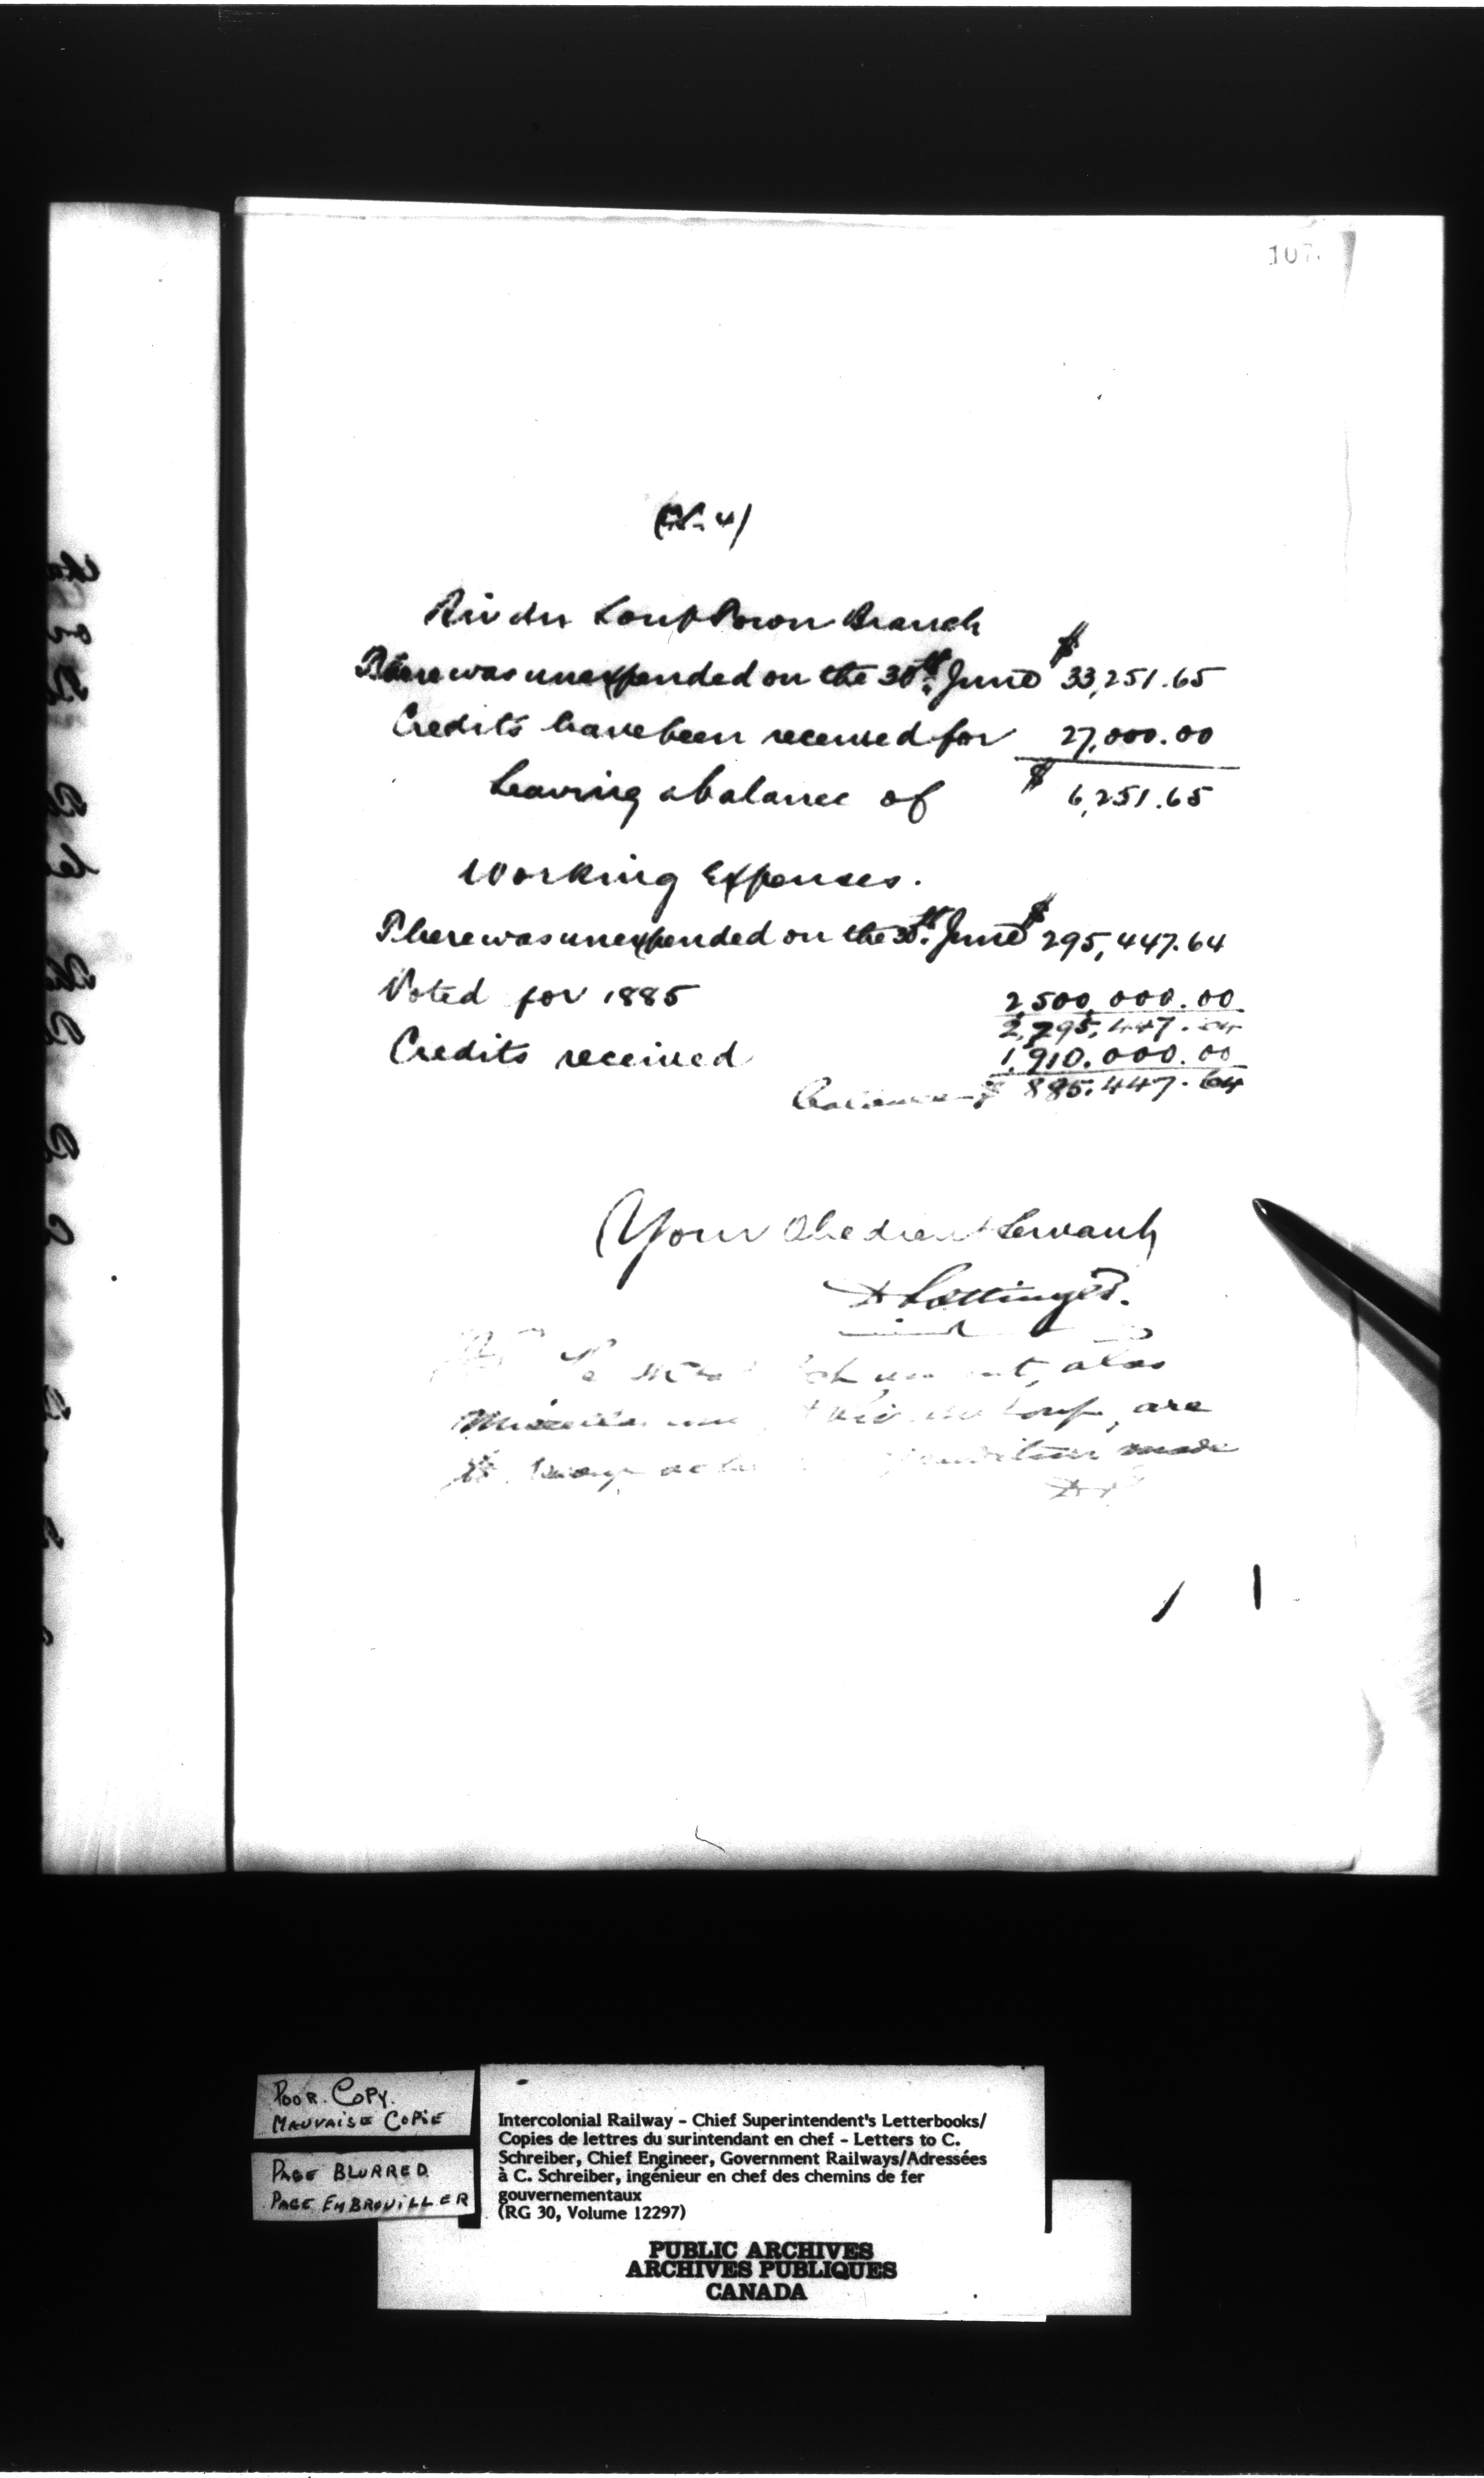 107
Riv du Loup Town Branch
There was unexpended on the 30th. June $ 33,251.65
Credits have been received for 27,000.00
Leaving a balance of $ 6,251.65
Working Expenses.
There was unexpended on the 30th. June $ 295,447.64
Voted for 1885 2,500,000.00
2,795,447.64
Credits received 1,910,000.00
Balance $ 885,447.64
Your Obedient Servant
D Pottinger.
also
Riv du Loup, are
made
DP
POOR COPY.
MAUVAISE COPIE
PAGE BLURRED
PAGE EMBROUILLER
Intercolonial Railway - Chief Superintendent's Letterbooks/
Copies de lettres du surintendant en chef - Letters to C.
Schreiber, Chief Engineer, Government Railways/Adressées
à C. Schreiber, ingénieur en chef des chemins de fer
gouvernementaux
(RG 30, Volume 12297)
PUBLIC ARCHIVES
ARCHIVES PUBLIQUES
CANADA